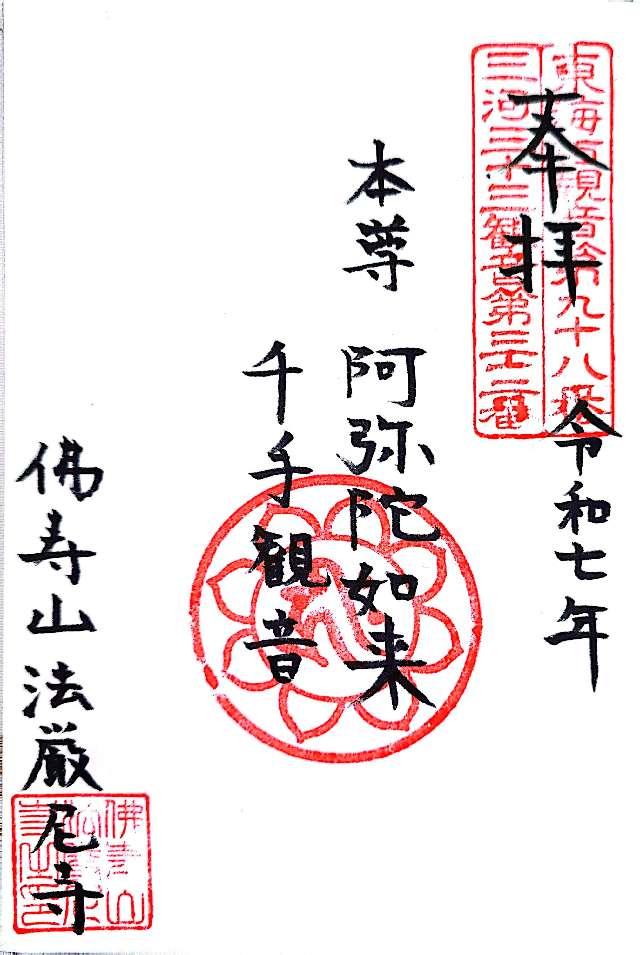 東海百観音第九十八番
三河三十三観音第三十二番
奉拝
令和七年
本尊 阿弥陀如来
千手観音
佛寿山 法厳尼寺